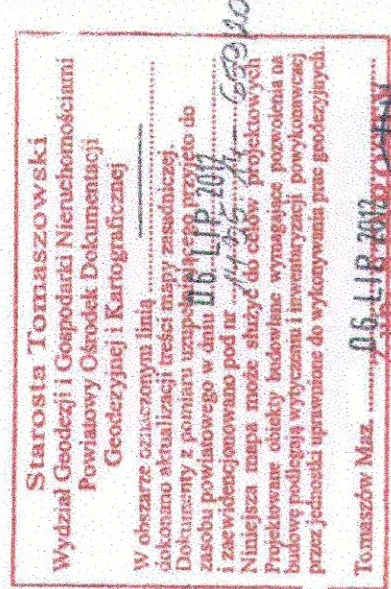 Starosta Tomaszowski
Wydział Geodezji i Gospodarki Nieruchomościami
Powiatowy Ośrodek Dokumentacji
Geodezyjnej i Kartograficznej
W obszarze oznaczonym linią
dokonano aktualizacji treści mapy zasadniczej.
Dokumenty z pomiaru uzupełniającego przyjęto do
zasobu powiatowego w dniu 06. LIP. 2012
i zaewidencjonowano pod nr
Niniejsza mapa może służyć do celów projektowych
Projektowane obiekty budowlane wymagające pozwolenia na
budowę podlegają wytyczeniu i inwentaryzacji powykonawczej
przez jednostki uprawnione do wykonywania prac geodezyjnych.
Tomaszów Maz. 06. LIP. 2012